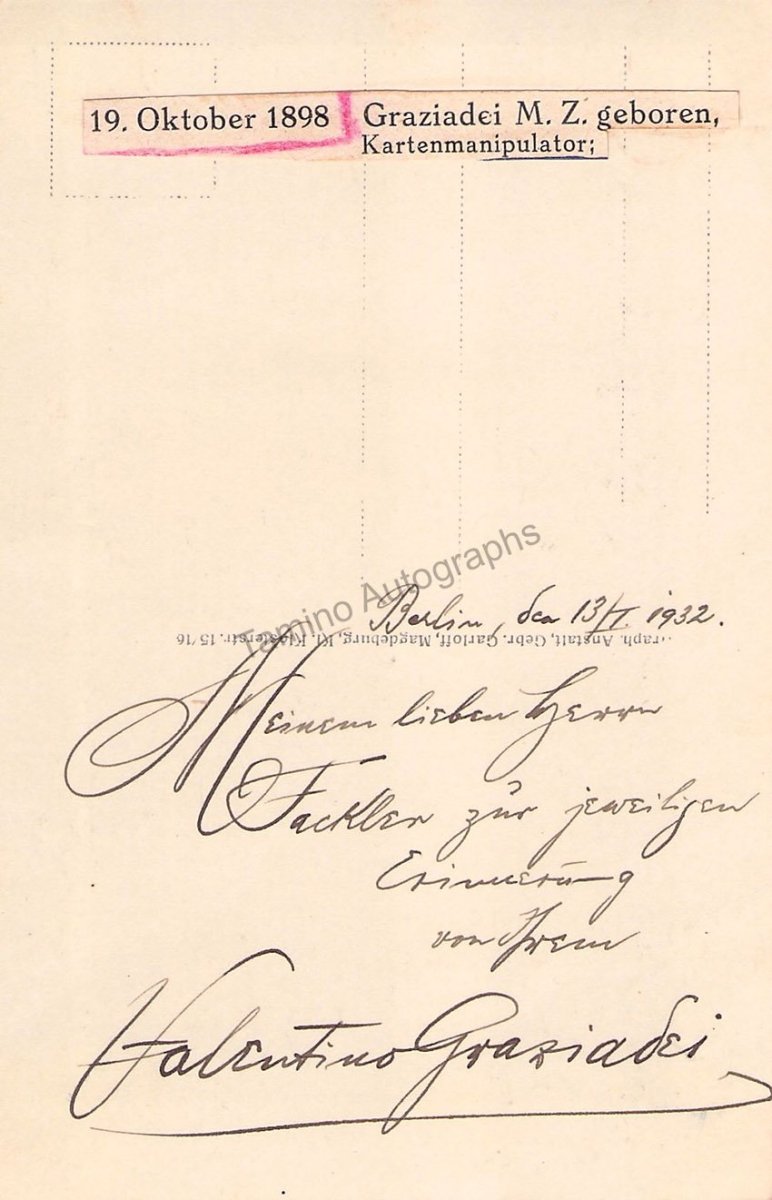 19. Oktober 1898 Graziadei M. Z. geboren,
Kartenmanipulator;
Tamino Autographs
Berlin, den 13/I. 1932.
...raph. Anstalt, Gebr. Garloff, Magdeburg, Kl. Klosterstr. 15/16
Meinem lieben Herrn
Fackler zur jeweiligen
Erinnerung
von Ihrem
Valentino Graziadei